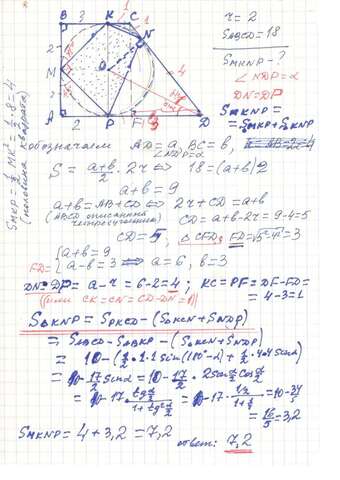 B K C 1
1
N
2
M
O
4
2
A 2 P F 3 D
r = 2
S_ABCD = 18
S_MKNP - ?
∠NDP = α
DN = DP
S_MKNP =
= S_MKP + S_KNP
S_MKP = 1/2 MK² = 1/2 · 8 = 4
(половина квадрата)
обозначаем AD = a, BC = b,
∠NDP = α
S = (a+b)/2 · 2r ⇔ 18 = (a+b)2
a+b = 9
a+b = AB + CD ⇔ 2r + CD = a+b
(ABCD описанная
четырехугольник) CD = a+b-2r = 9-4 = 5
CD = 5, △CFD: FD = √(5²-4²) = 3
{a+b = 9
FD = {a-b = 3 ⇒ a = 6, b = 3
DN = DP = a - r = 6-2 = 4; KC = PF = DF - FD =
(или CK = CN = CD - DN = 1) = 4-3 = 1
S_ΔKNP = S_PKCD - (S_KCN + S_NDP)
= S_ABCD - S_ABKP - (S_KCN + S_NDP)
= 10 - (1/2 · 1·1 sin(180°-α) + 1/2 · 4·4 sin α)
= 10 - 17/2 sin α = 10 - 17/2 · 2 sin α/2 cos α/2
= 10 - 17 · tg α/2 / (1+tg² α/2) = 10 - 17 · 1/2 / (1+1/4) = 10 - 34/5
= 16/5 = 3,2
S_MKNP = 4 + 3,2 = 7,2
ответ: 7,2